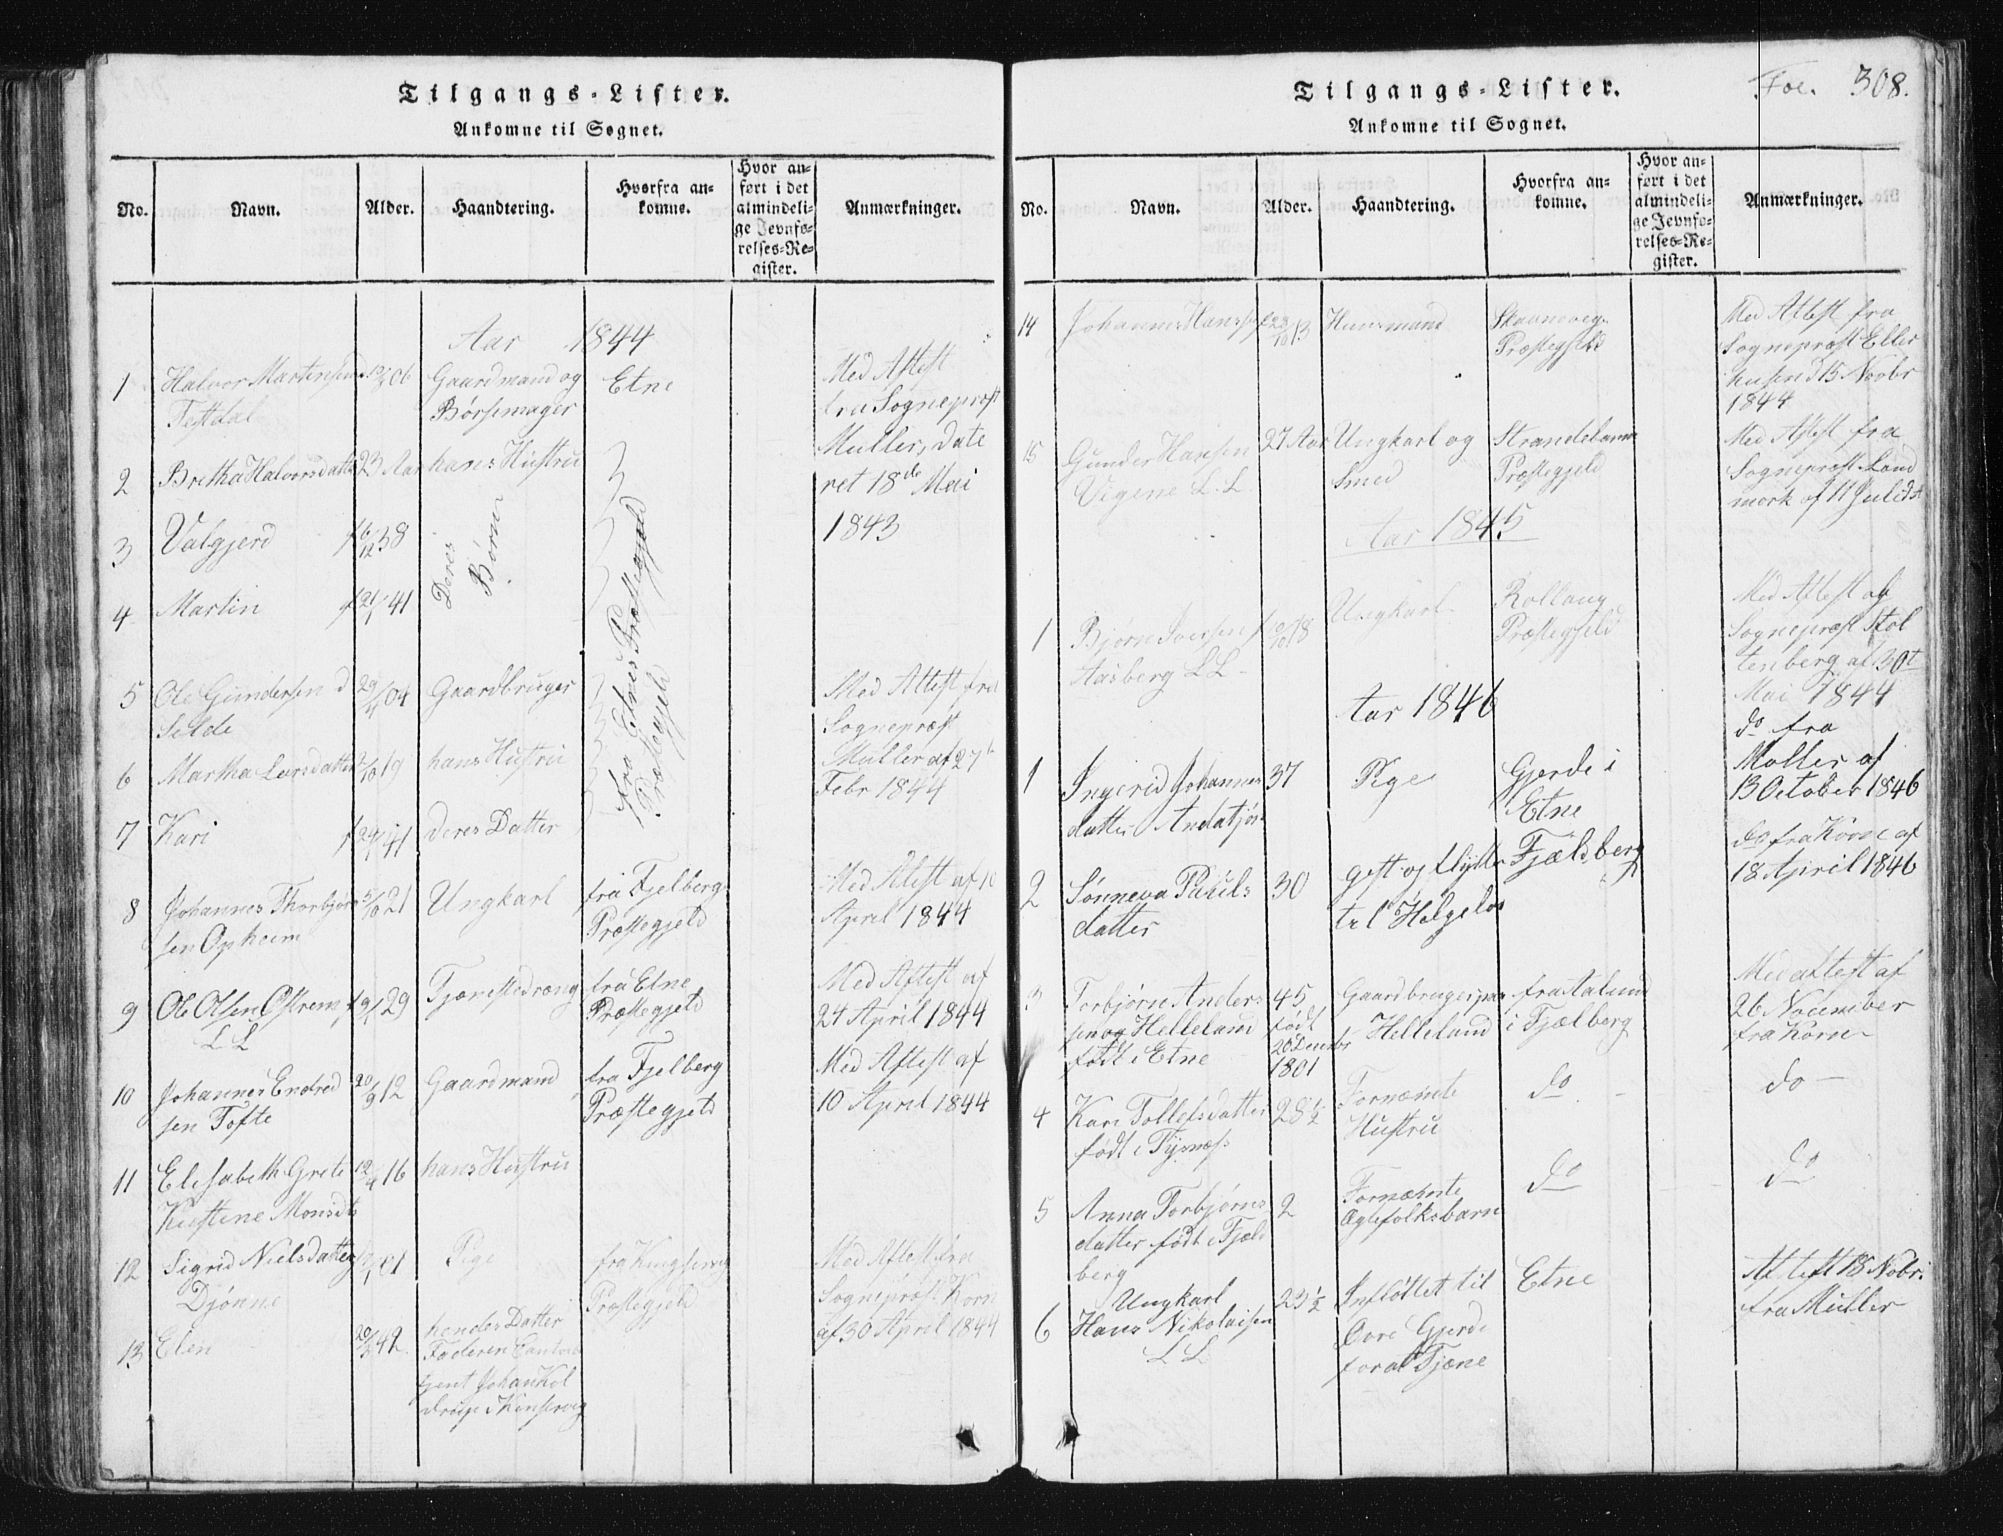 Tilgangs-Lister.
Ankomne til Sognet.
No.
Navn.
Alder.
Haandtering.
Hvorfra an-
komne.
Hvor an-
ført i det
almindeli-
ge Jevnfø-
relses-Re-
gister.
Anmærkninger.
Aar 1844
1
Halvor Martensen
06
Gaardmand og
Børsemager
Etne
Med Attest
fra Sognepræst
Muller, date
ret 18de Mai
1843
2
Bretha Halvorsdatter
23 Aar
hans Hustru
3
Valgjerd
f 6/12 38
Deres
Børn
4
Martin
f 21/1 41
fra Etnes Præstegjeld
5
Ole Gundersen
Silde
29/4 04
Gaardbruger
fra Etnes
Præstegjeld
Med Attest fra
Sognepræst
Muller af 27
Febr 1844
6
Martha Larsdatter
/10 19
hans Hustru
7
Kari
41
deres Datter
8
Johannes Thorbjørn
sen Opheim
5/10 21
Ungkarl
fra Fjelberg
Præstegjeld
Med Attest af 10
April 1844
9
Ole Olsen Østrem
LL
29
Tjenestedreng
fra Etne
Præstegjeld
Med Attest af
24 April 1844
10
Johannes Endred
sen Tofte
20/9 12
Gaardmand
fra Fjelberg
Præstegjeld
Med Attest af
10 April 1844
11
Elisabeth Grete
Kirstine Monsdtr
12/4 16
hans Hustru
12
Sigrid Nielsdatter
Djønne
01
Pige
fra Kingservig
Præstegjeld
Med Attest fra
Sognepræst Korn
af 30 April 1844
13
Elen
42
hendes Datter
Faderen
Johan Kol
Kinservig
Tilgangs-Lister.
Ankomne til Sognet.
Foe. 308.
No.
Navn.
Alder.
Haandtering.
Hvorfra an-
komne.
Hvor an-
ført i det
almindeli-
ge Jevnfø-
relses-Re-
gister.
Anmærkninger.
14
Johannes Hansen
f 28/10 13
Huusmand
Skaanevigs
Præstegjeld
Med Attest fra
Sognepræst Eller
husen d 15 Novbr
1844
15
Gunder Hansen
Vigene L.L.
27 Aar
Ungkarl og
Smed
Strandebarm
Præstegjeld
Med Attest fra
Sognepræst Land
mark af 11 Juli
Aar 1845
1
Bjørn Iversen
Aasberg LL
18
Ungkarl
Rollaug
Præstegjeld
Med Attest af
Sognepræst Stol
tenberg af 30t
Mai 1844
Aar 1846
1
Ingerid Johannes
datter
37
Pige
Gjerde i
Etne
do fra
Moller af
13 October 1846
2
Sønneva Pauls
datter
30
gift og flytter
til Helgeland
Fjælsberg
do fra Korn af
18 April 1846
3
Torbjørn Anders
sen og Helleland
født i Etne
45
født
20 Decembr
1801
Gaardbruger paa
Helleland
fra
i Fjælberg
Med attest af
26 November
fra Korn
4
Kari Tollefsdatter
født i Tysnæs
28 1/2
Fornæmte
Hustru
do
do
5
Anna Torbjørns
datter født i Fjæl
berg
2
Fornæmte
Ægtefolks barn
do
do
6
Ungkarl
Hans Nikolaisen
LL
23 1/2
Indfløttet til
Øvre Gjerde
for at Tjene
Etne
Attest 18 Nobr.
fra Muller